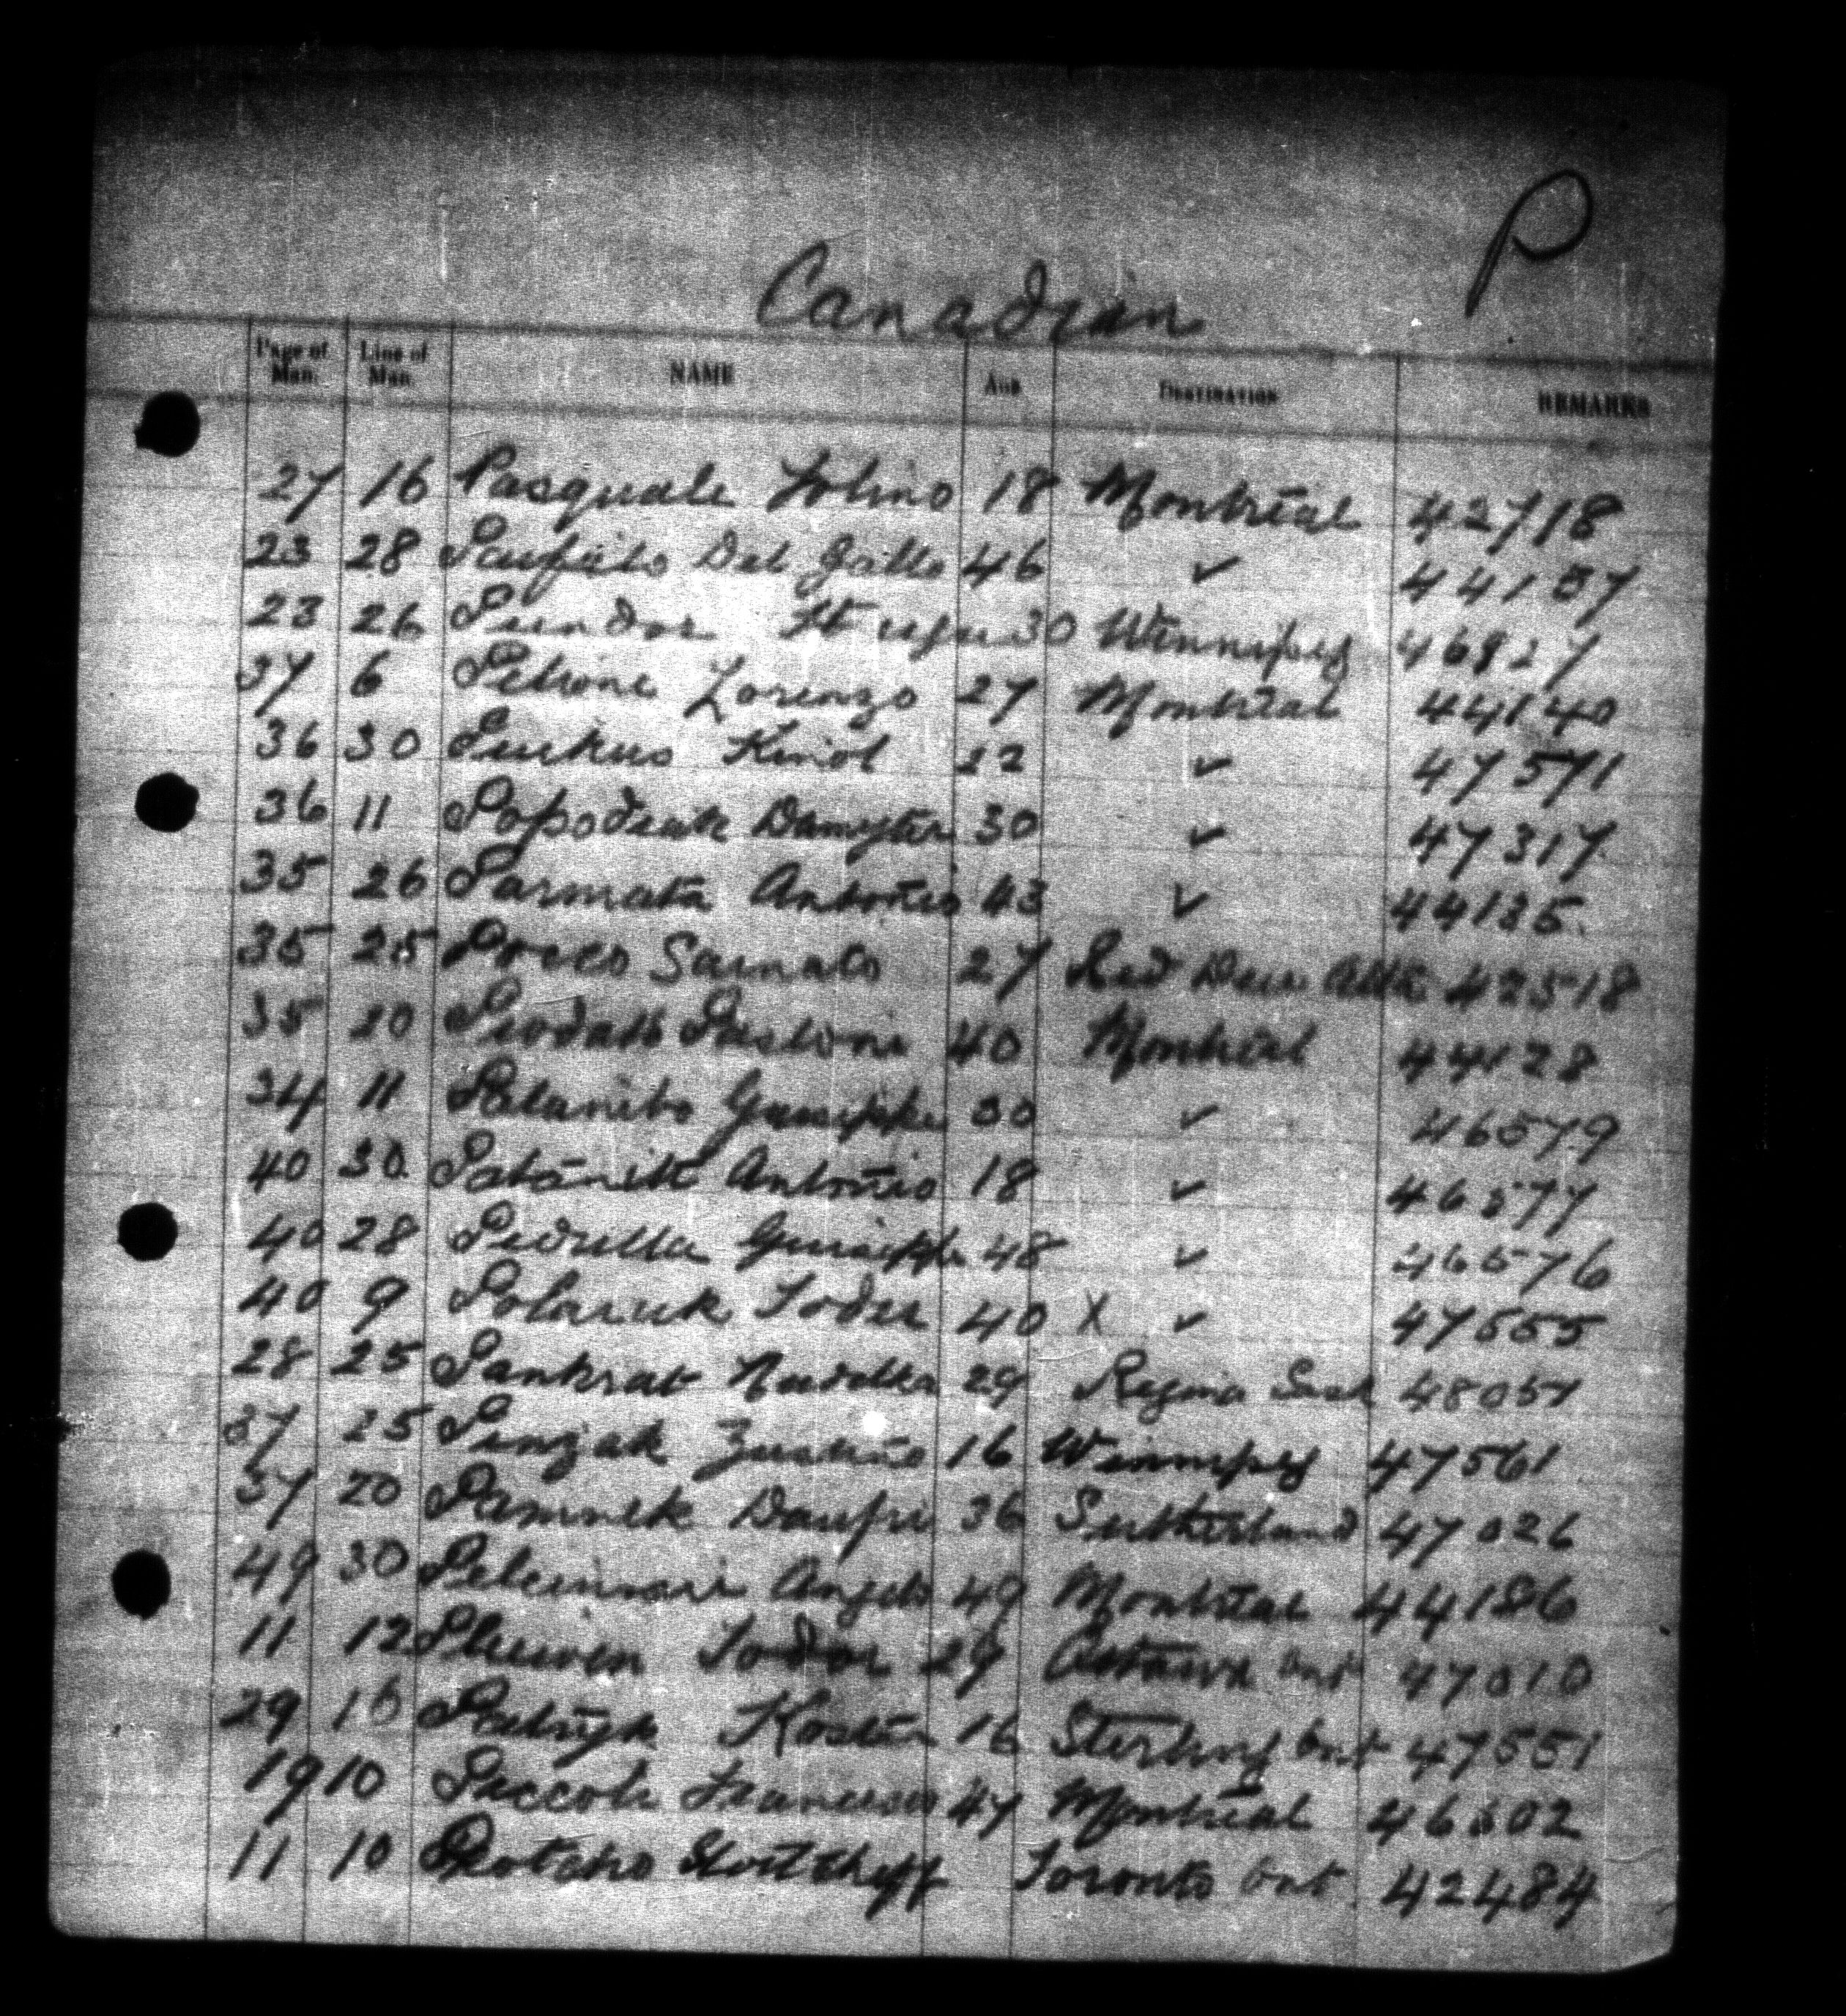 P
Canadian
Page of Man. Line of Man. NAME AGE DESTINATION REMARKS
27 16 Pasquale Tolino 18 Montreal 42718
23 28 Del Gallo 46 ✓ 44137
23 26 30 Winnipeg 46927
37 6 Petrone Lorenzo 27 Montreal 44140
36 30 Kirol 22 ✓ 47571
36 11 Popodiuk Damytar 30 ✓ 47317
35 26 Parmata Antonio 43 ✓ 44135
35 25 Porces Sainato 27 Red Deer Alta 42518
35 20 40 Montreal 44128
34 11 Patanito Guiseppe 30 ✓ 46579
40 30 Patanite Antonio 18 ✓ 46577
40 28 Pedulla Guiseppe 48 ✓ 46576
40 9 Polaruk Toder 40 X ✓ 47555
28 25 Pankrat 29 Regina Sask 48057
37 25 16 Winnipeg 47561
37 20 36 Sutherland 47026
49 30 Angelo 49 Montreal 44186
11 12 Todor 29 Ottawa Ont 47010
29 16 Patryk Kostin 16 Sterling Ont 47551
19 10 Piccole Francesco 47 Montreal 46602
11 10 Toronto Ont 42484